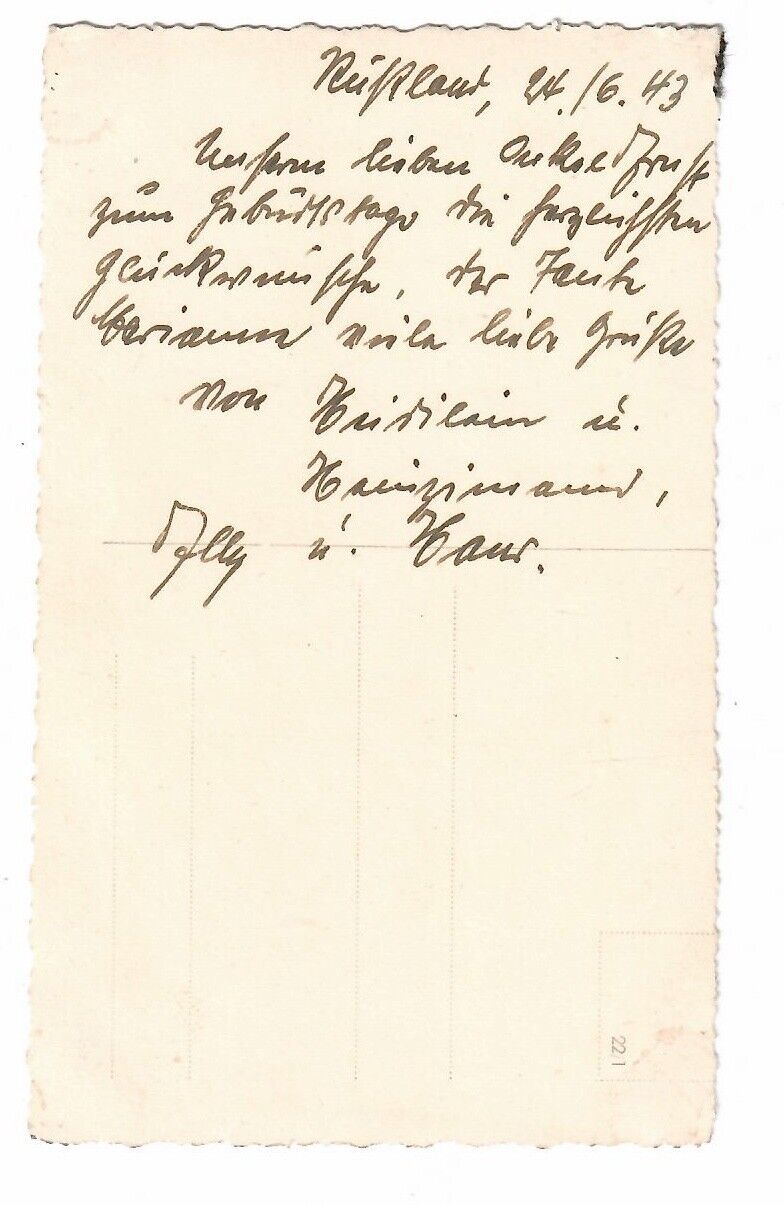 Rußland, 24./6.43
Unserm lieben Onkel Ernst
zum Geburtstage die herzlichsten
Glückwünsche, der Tante
Mariann viele liebe Grüße
von Heidilein u.
Heinzimann,
Elly u. Hans.
22 I